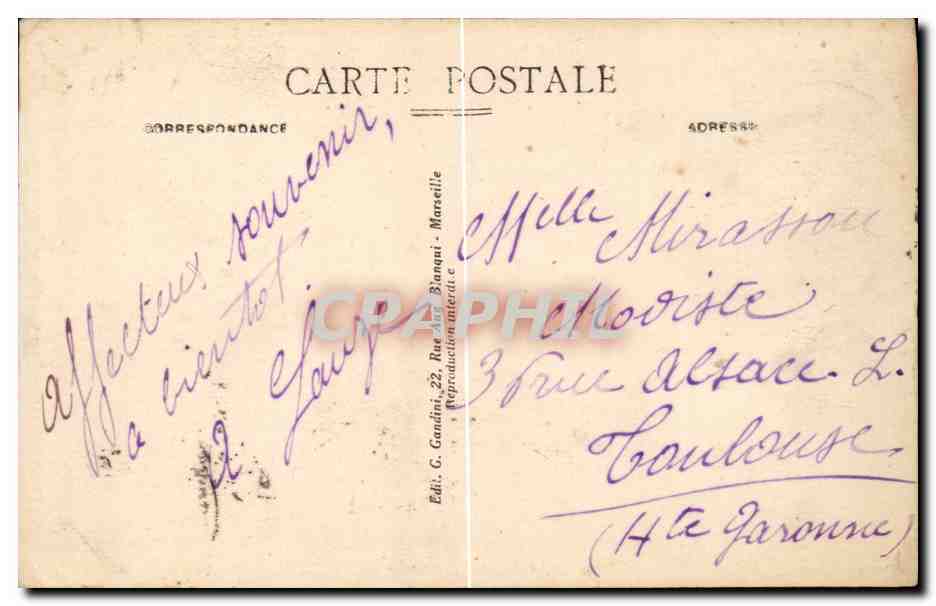 CARTE POSTALE
CORRESPONDANCE
ADRESSE
affecteux souvenir,
a bientot
Edit. G. Gandini, 22, Rue Aug. Blanqui - Marseille
Reproduction interdite
CRAPHIL
Melle Mirassou
Modiste
rue Alsace. L.
Toulouse
(Hte Garonne)